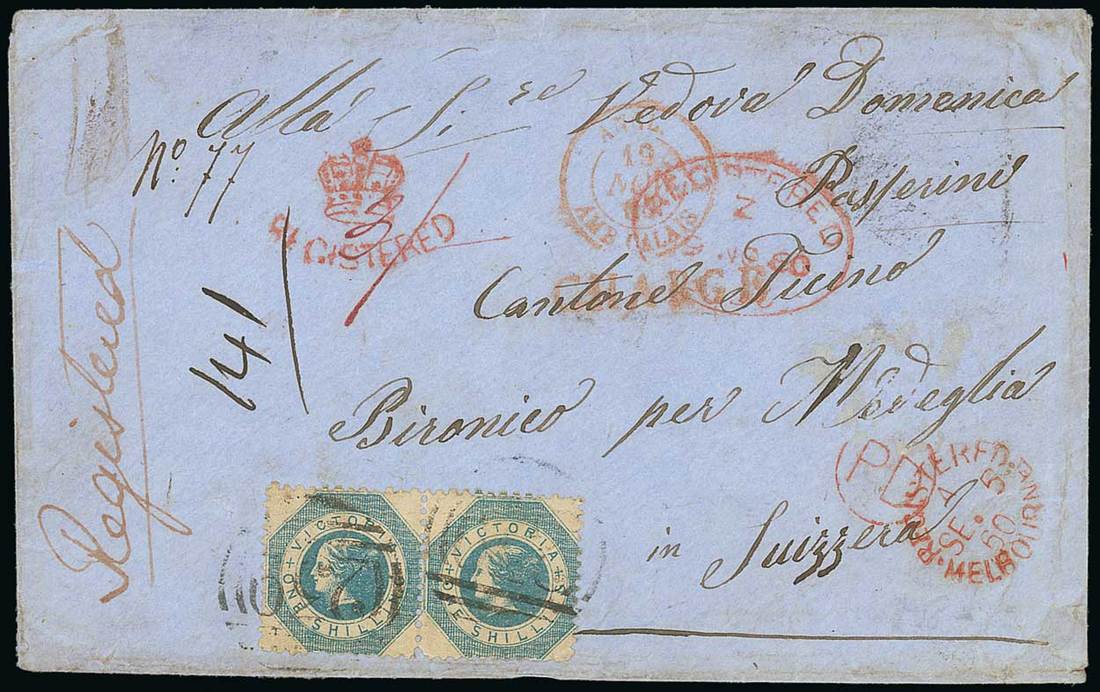 Alla S.re Vedova Domenica
No. 77
Passerini
REGISTERED
Registered
141
Cantone Ticino
CHARGÉ
Bironico per Medeglia
in Suizzera
AMB. CALAIS
19
REGISTERED
60
PD
REGISTERED
SE 60
MELBOURNE
VICTORIA
ONE SHILLING
VICTORIA
ONE SHILLING